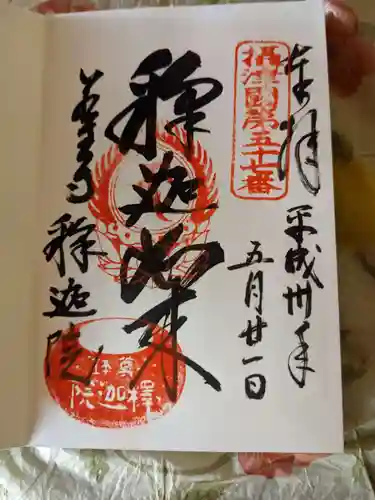 奉拝
摂津國第五十七番
平成卅年
五月廿一日
釋迦如来
若王寺 釋迦院
尊鉢
釋迦院